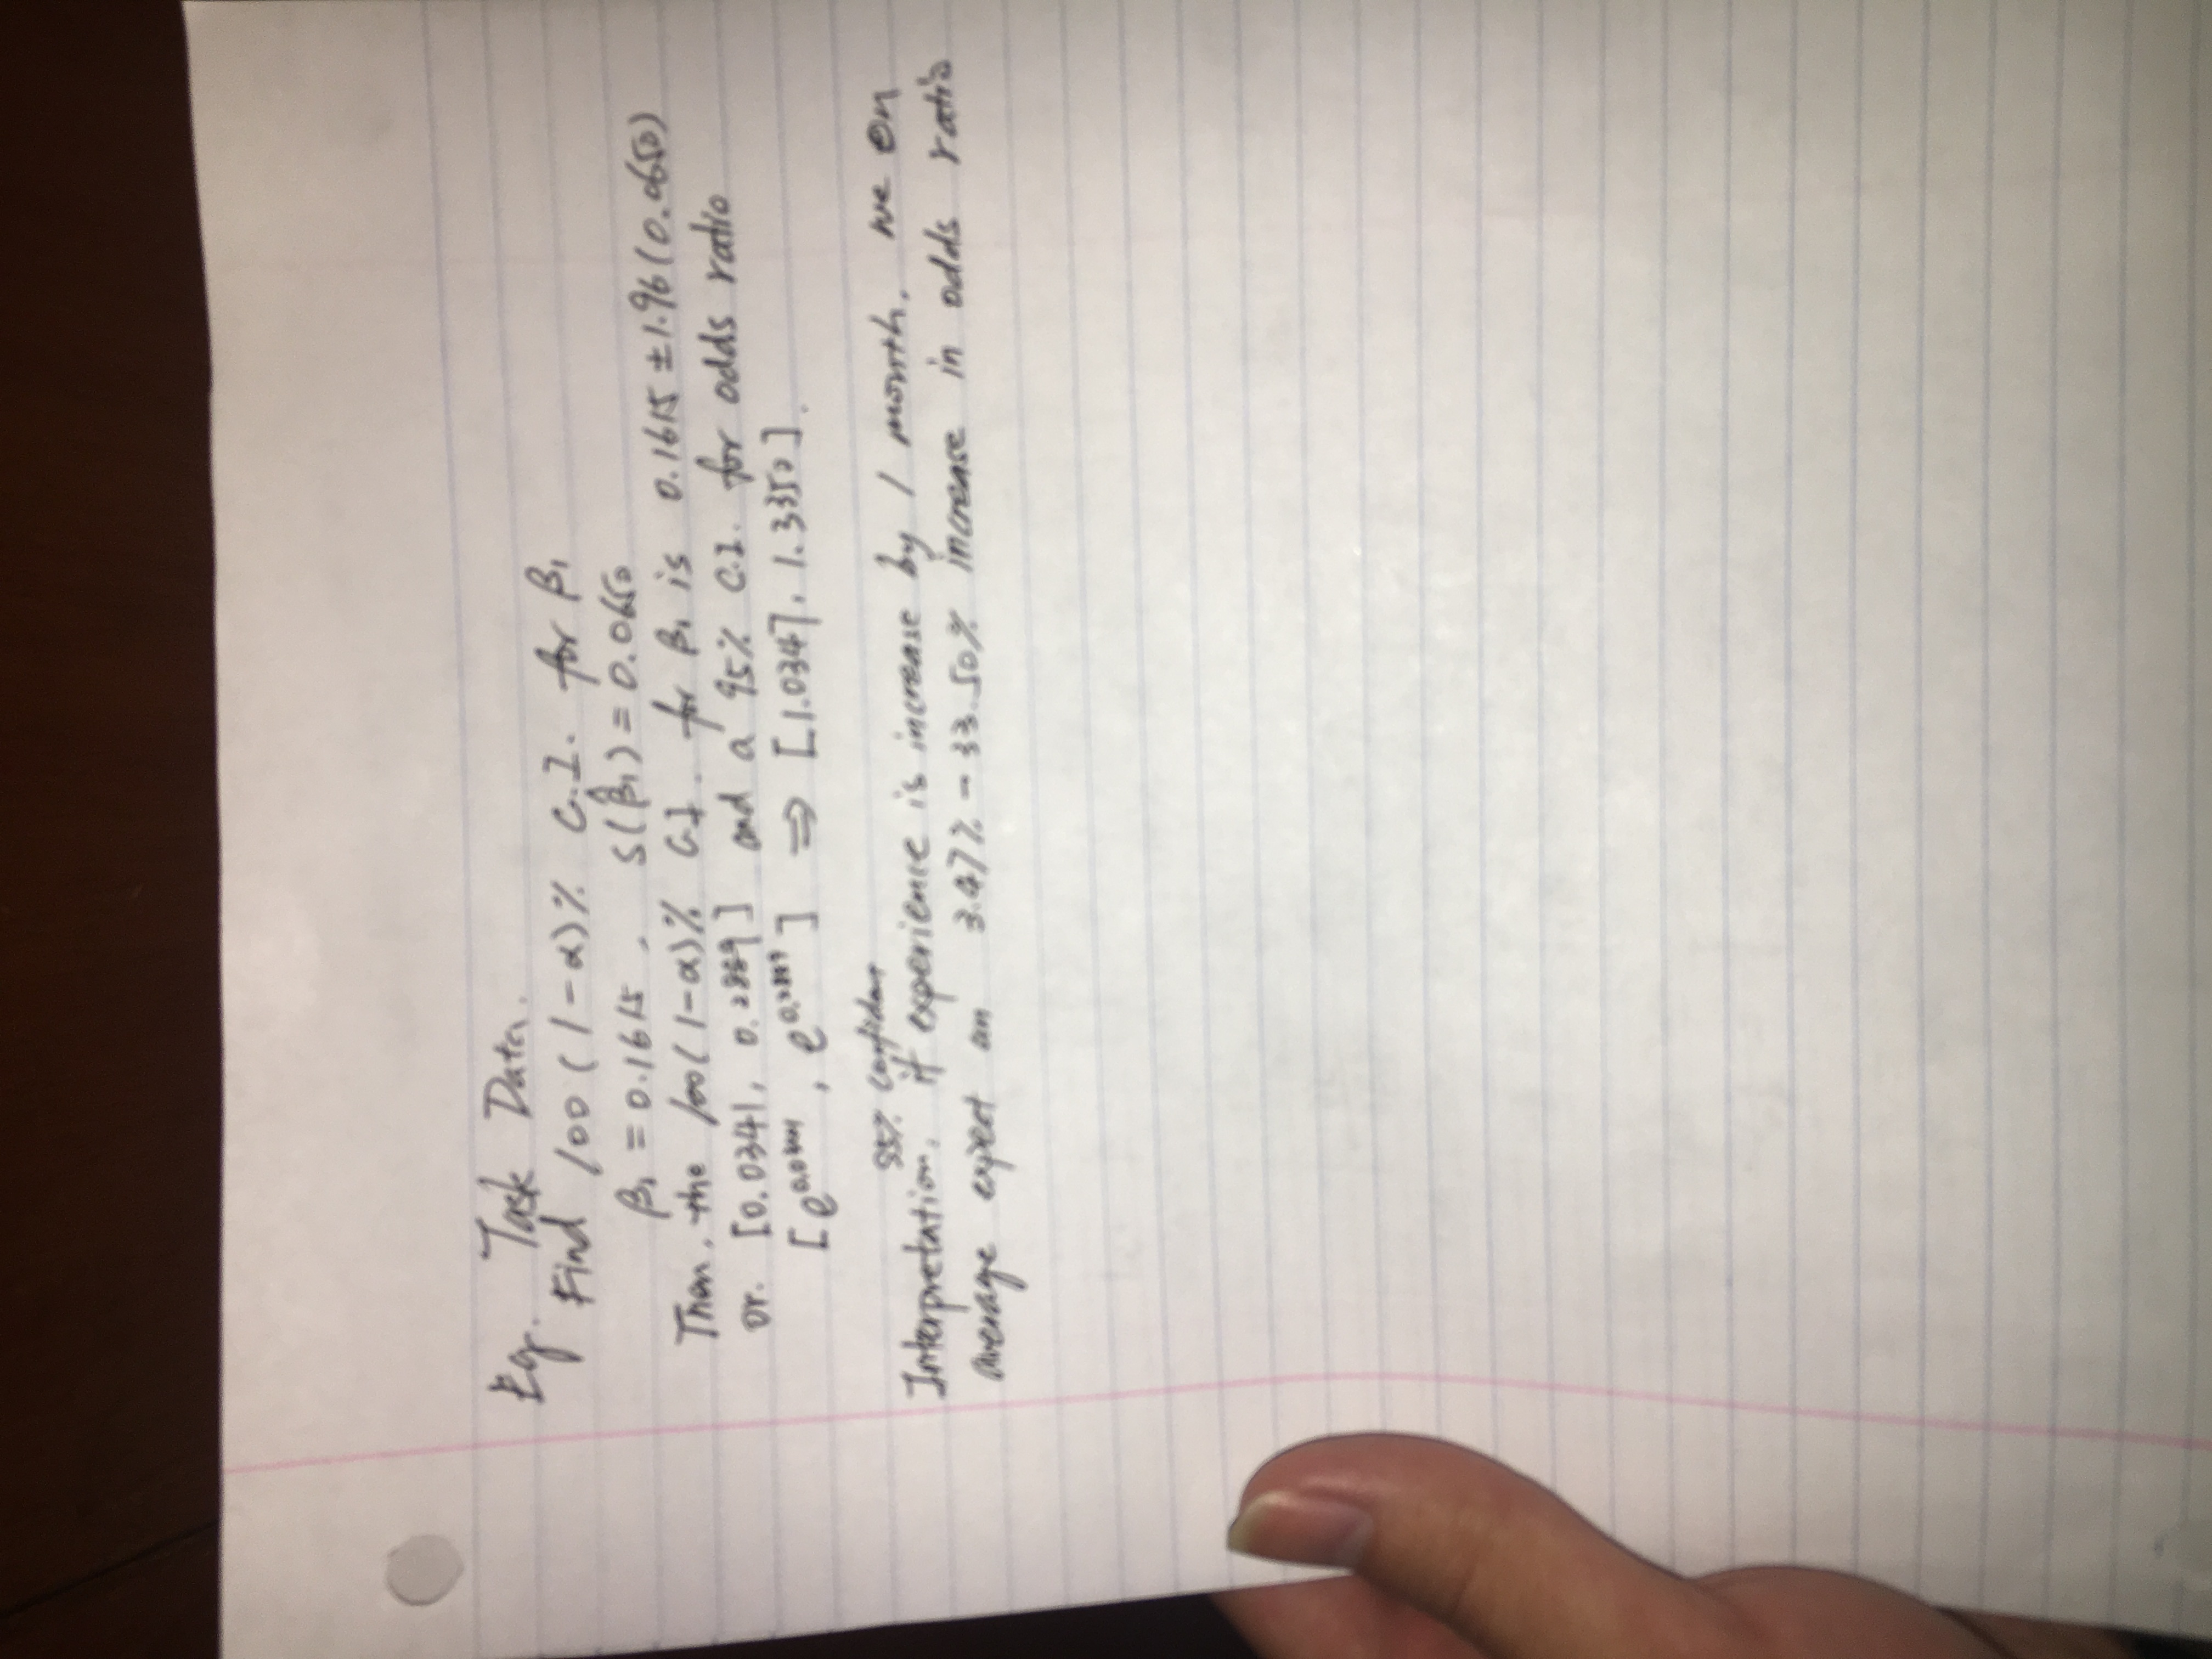 Eg. Task Data.
Find 100(1-α)% C.I. for β₁
β₁ = 0.1615, S(β̂₁) = 0.0650
Then, the 100(1-α)% C.I. for β₁ is 0.1615 ± 1.96(0.0650)
or. [0.0341, 0.2889] and a 95% C.I. for odds ratio
[e^0.0341, e^0.2889] ⇒ [1.0347, 1.3350].
95% confidence
Interpretation, if experience is increase by 1 month, we on
average expect an 3.47% - 33.50% increase in odds ratio